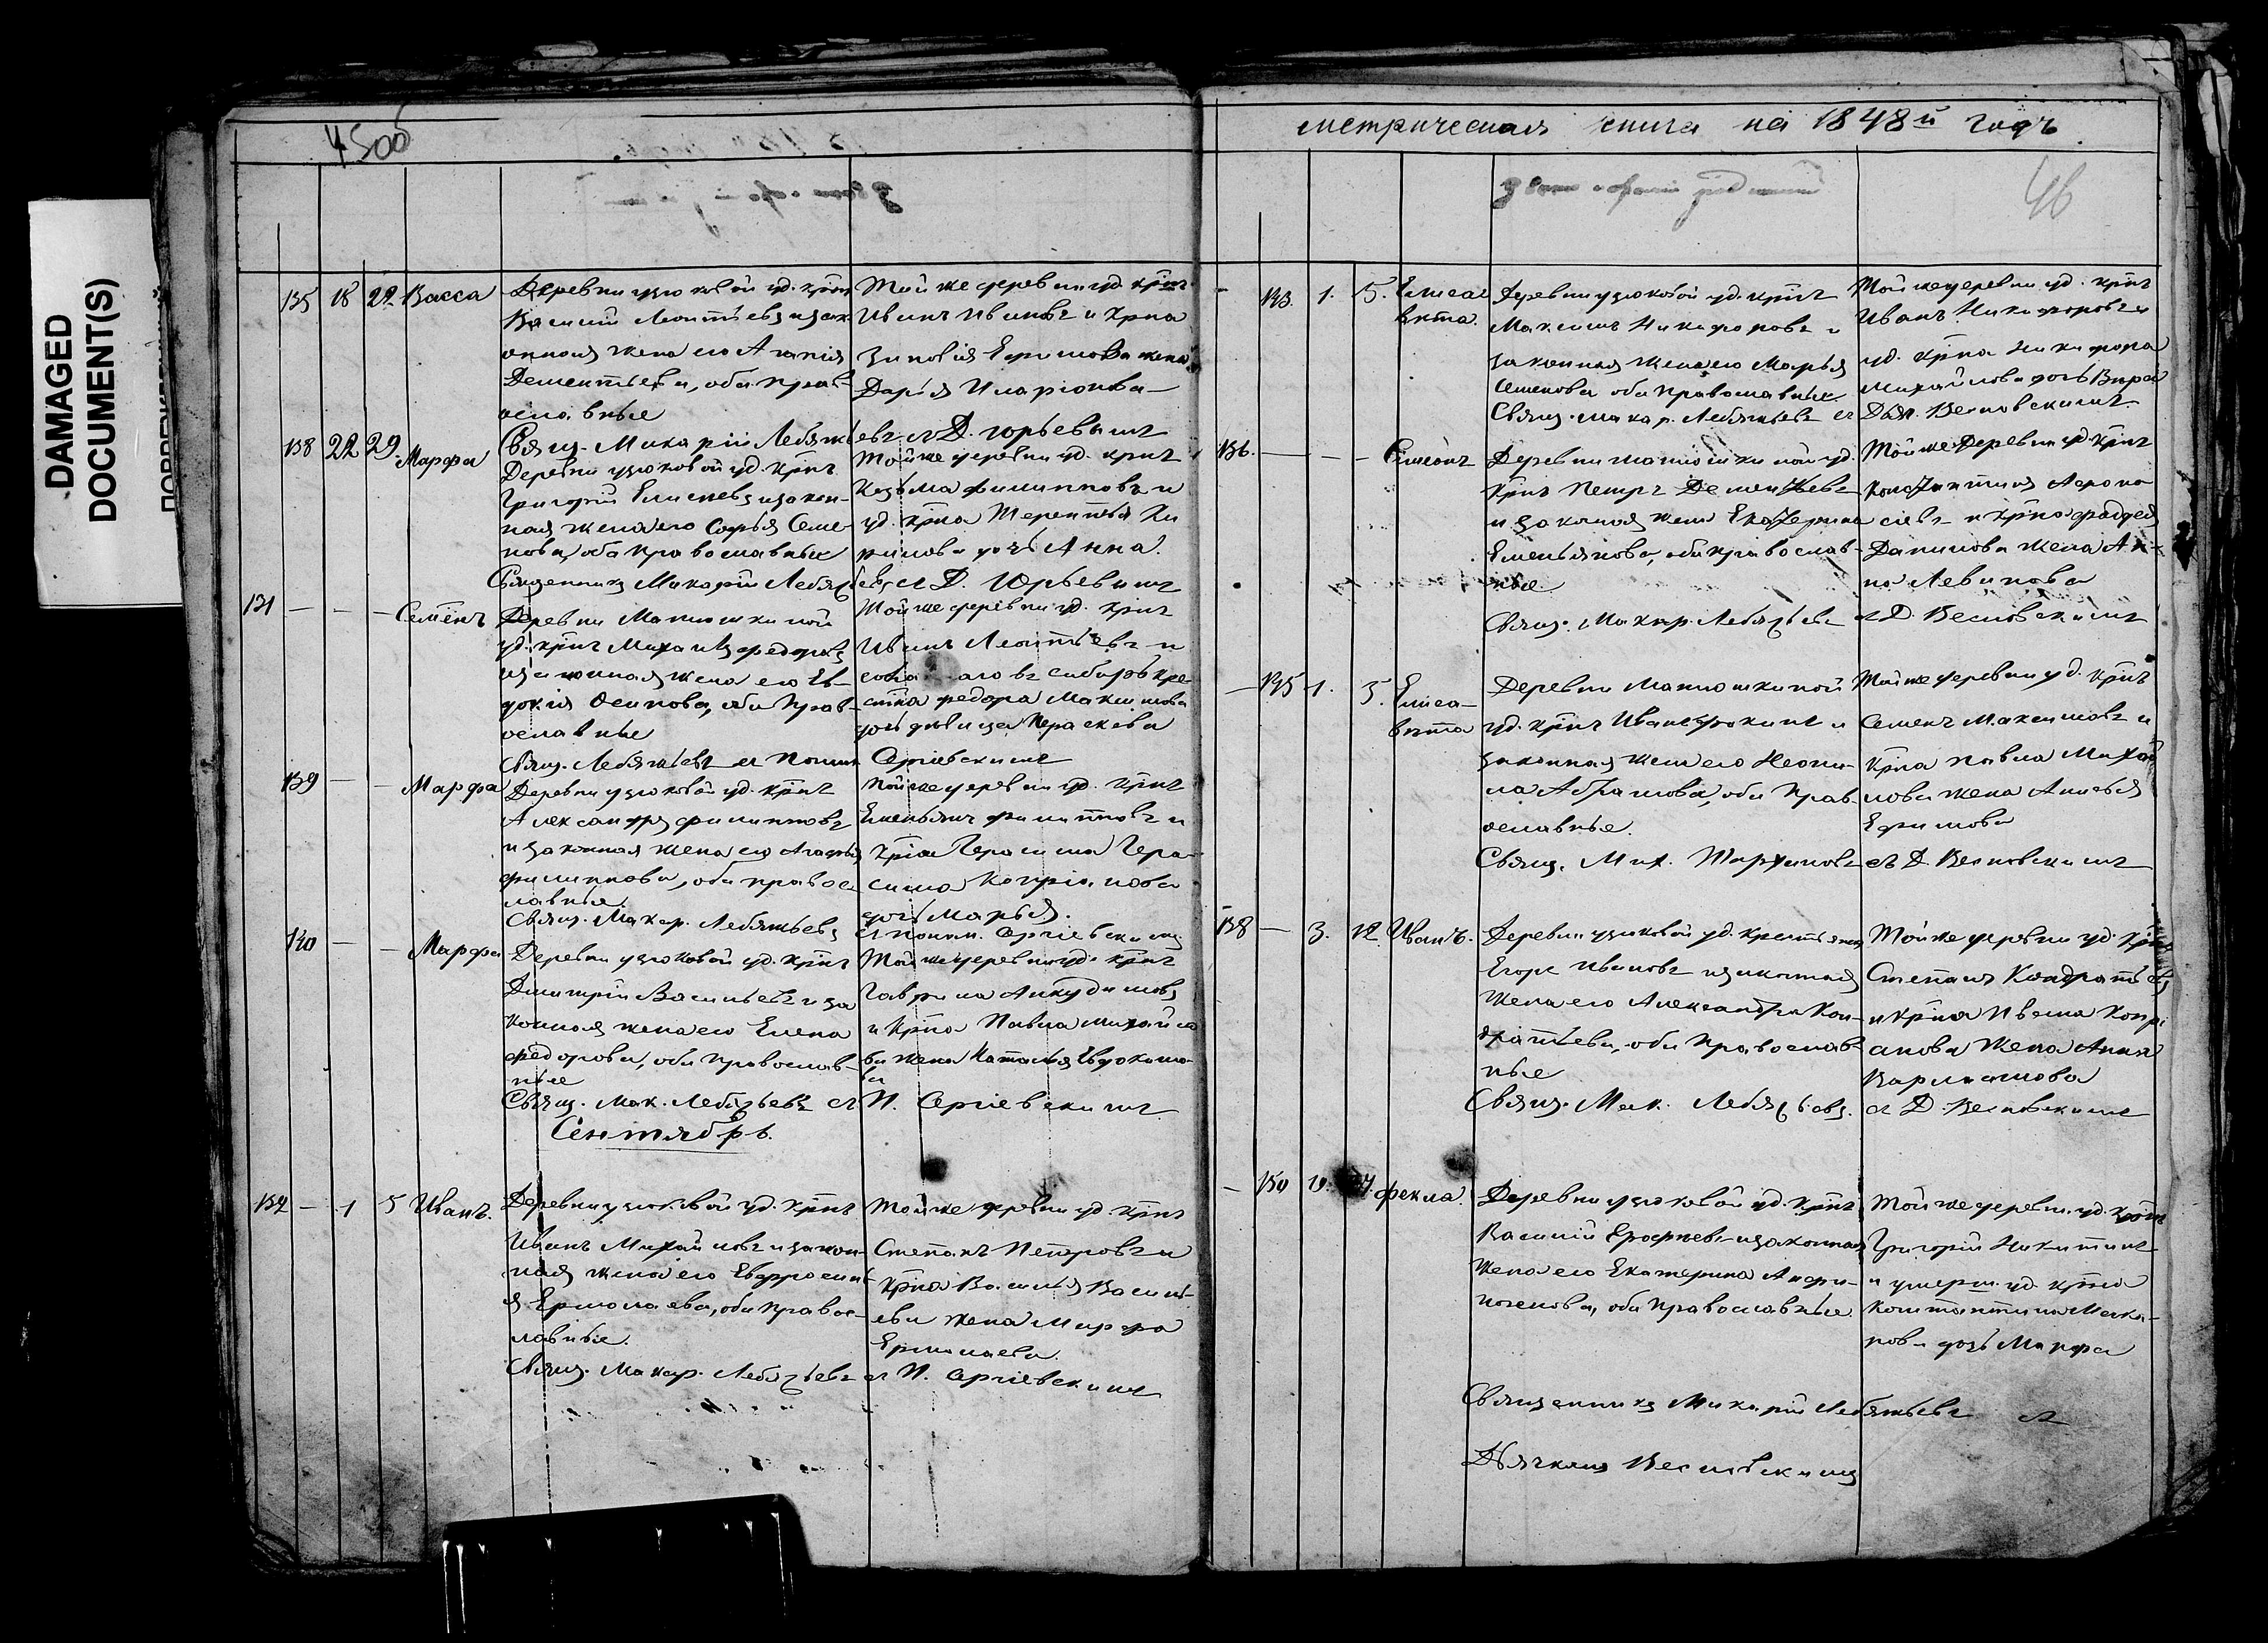 DAMAGED
DOCUMENT(S)
45об
135 18 22 Васса Деревни узюковой уд. крпнъ
Василій Леонтьевъ и зак
онная жена его Агапія
Дементьева, оба Прав
ославные
Той же деревни уд. крпнъ
Иванъ Ивановъ и крпна
Зиновія Ефимова жена
Дарья Иларіонова
Свящ. Макарій Лебяжьевъ съ Д. Юрьевымъ
138 22 29 Марфа Деревни узюковой уд. крпнъ
Григорій Елисеевъ и закон-
ная жена его Софья Семе-
нова, оба Православные
Той же деревни уд. крпнъ
Козьма Филипповъ и
уд. крпна Терентья Ки
рилова дочь Анна.
Священникъ Макарій Лебяжьевъ съ Д. Юрьевымъ
131 — — — Семёнъ Деревни Матюшкиной
уд. крпнъ Михаилъ Федоровъ
и законная жена его Ев-
докія Осипова, оба Прав-
ославные
Той же деревни уд. крпнъ
Иванъ Леонтьевъ и
въ Сибирь кре-
стна Федора Максимова
дочь девица Параскева
Свящ. Лебяжьевъ съ Поном. Сергіевскимъ
139 — — Марфа Деревни узюковой уд. крпнъ
Александръ Филипповъ
и законная жена его Агафья
Филиппова, оба правос
лавные.
Той же деревни уд. крпнъ
Емельянъ Филипповъ и
крпна Герасима
Кипріанова
дочь Марья.
Свящ. Макар. Лебяжьевъ съ поном. Сергіевскимъ
140 — — Марфа Деревни узюковой уд. крпнъ
Дмитрій Васильевъ и за
конная жена его Елена
Федорова, оба Православ-
ные
Той же деревни уд. крпнъ
Гаврила Анкудиновъ
и крпна Павла Михайло
ва жена Наталья Евдокимо-
ва
Свящ. Мак. Лебяжьевъ съ П. Сергіевскимъ
Сентябрь.
132 — 1 5 Иванъ. Деревни узюковой уд. крпнъ
Иванъ Михайловъ и закон-
ная жена его Евфросинь
я Ермолаева, оба Правос-
лавные.
Той же деревни уд. крпнъ
Степанъ Петровъ и
крпна Василья Василь-
ева жена Марфа
Ермолаева.
Свящ. Макар. Лебяжьевъ съ П. Сергіевскимъ
метрическая книга на 1848й годъ
46
— 143. 1. 5. Елиса
вета. Деревни узюковой уд. крпнъ
Максимъ Никифоровъ и
законная жена его Марья
Семенова оба православные.
Той же деревни уд. крпнъ
Иванъ Никифоровъ и
уд. крпна Никифора
Михайлова дочь Вера
Свящ. Макар. Лебяжьевъ съ Дьяч. Весновскимъ
136. — — — Симеонъ Деревни Матюшкиной уд.
крпнъ Петръ Дементьевъ
и законная жена Екатерина
Емельянова, оба православ-
ные.
Той же Деревни уд. крпнъ
Константинъ
и крпна Фаддея
Данилова жена Ан-
на Левинова
Свящ. Макар. Лебяжьевъ съ Д. Весновскимъ
— 145 1. 5. Елиса-
вета Деревни Матюшкиной
уд. крпнъ Иванъ Фокинъ и
законная жена его Неони-
ла Абрамова, оба Прав-
ославные.
Той же деревни уд. крпнъ
Семенъ Максимовъ и
крпна Павла Михай
лова жена Анисья
Ефимова
Свящ. Мих. съ Д. Весновскимъ
138 — 3. 12. Иванъ. Деревни узюковой уд. крестьянинъ
Егоръ Ивановъ и законная
жена его Александра Кон-
дратьева, оба Православ-
ные
Той же деревни уд. крпнъ
Степанъ Кондратьевъ
и крпна Ивана Кипрі
анова жена Анна
Варламова
Свящ. Мак. Лебяжьевъ. съ Д. Весновскимъ
— 150 19. 24. Фекла. Деревни узюковой уд. крпнъ
Василій Ерофеевъ и законная
жена его Екатерина Анфи-
ногенова, оба Православные.
Той же деревни, уд. крпнъ
Григорій Никитинъ
и умерш. уд. крпна
Константина Мака-
рова дочь Марфа
Священникъ Макарій Лебяжьевъ съ
Дьячкомъ Весновскимъ